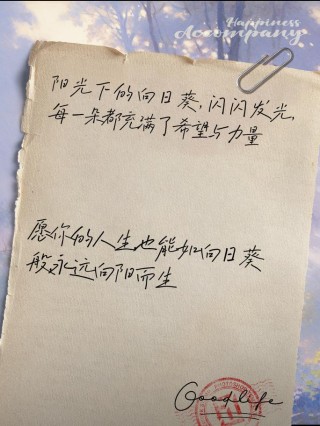 Happiness
Accompany
阳光下的向日葵，闪闪发光，
每一朵都充满了希望与力量
愿你的人生也能如向日葵
般永远向阳而生
Goodlife